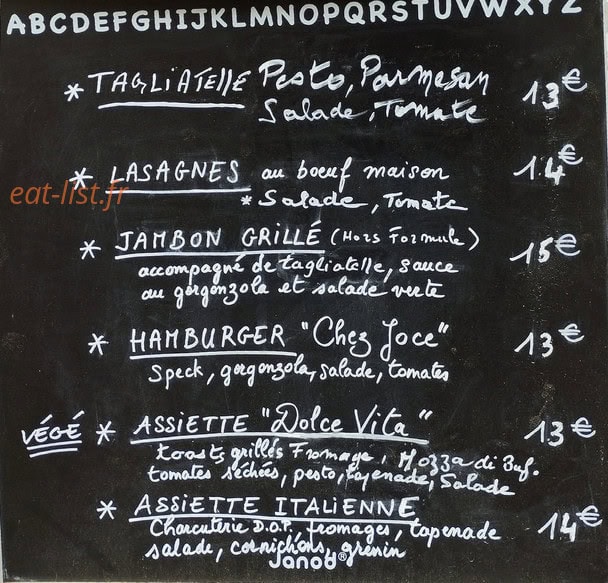 ABCDEFGHIJKLMNOPQRSTUVWXYZ
* TAGLIATELLE Pesto, Parmesan 13€
Salade, Tomate
* LASAGNES au boeuf maison 14€
eat-list.fr
* Salade, Tomate
* JAMBON GRILLÉ (Hors Formule) 15€
accompagné de tagliatelle, sauce
au gorgonzola et salade verte
* HAMBURGER "Chez Joce" 13€
Speck, gorgonzola, salade, tomates
VÉGÉ * ASSIETTE "Dolce Vita" 13€
toasts grillés Fromage, Mozza di Buf.
tomates séchées, pesto, tapenade, Salade
* ASSIETTE ITALIENNE 14€
Charcuterie D.O.P. fromages, tapenade
salade, cornichons,
Janod®